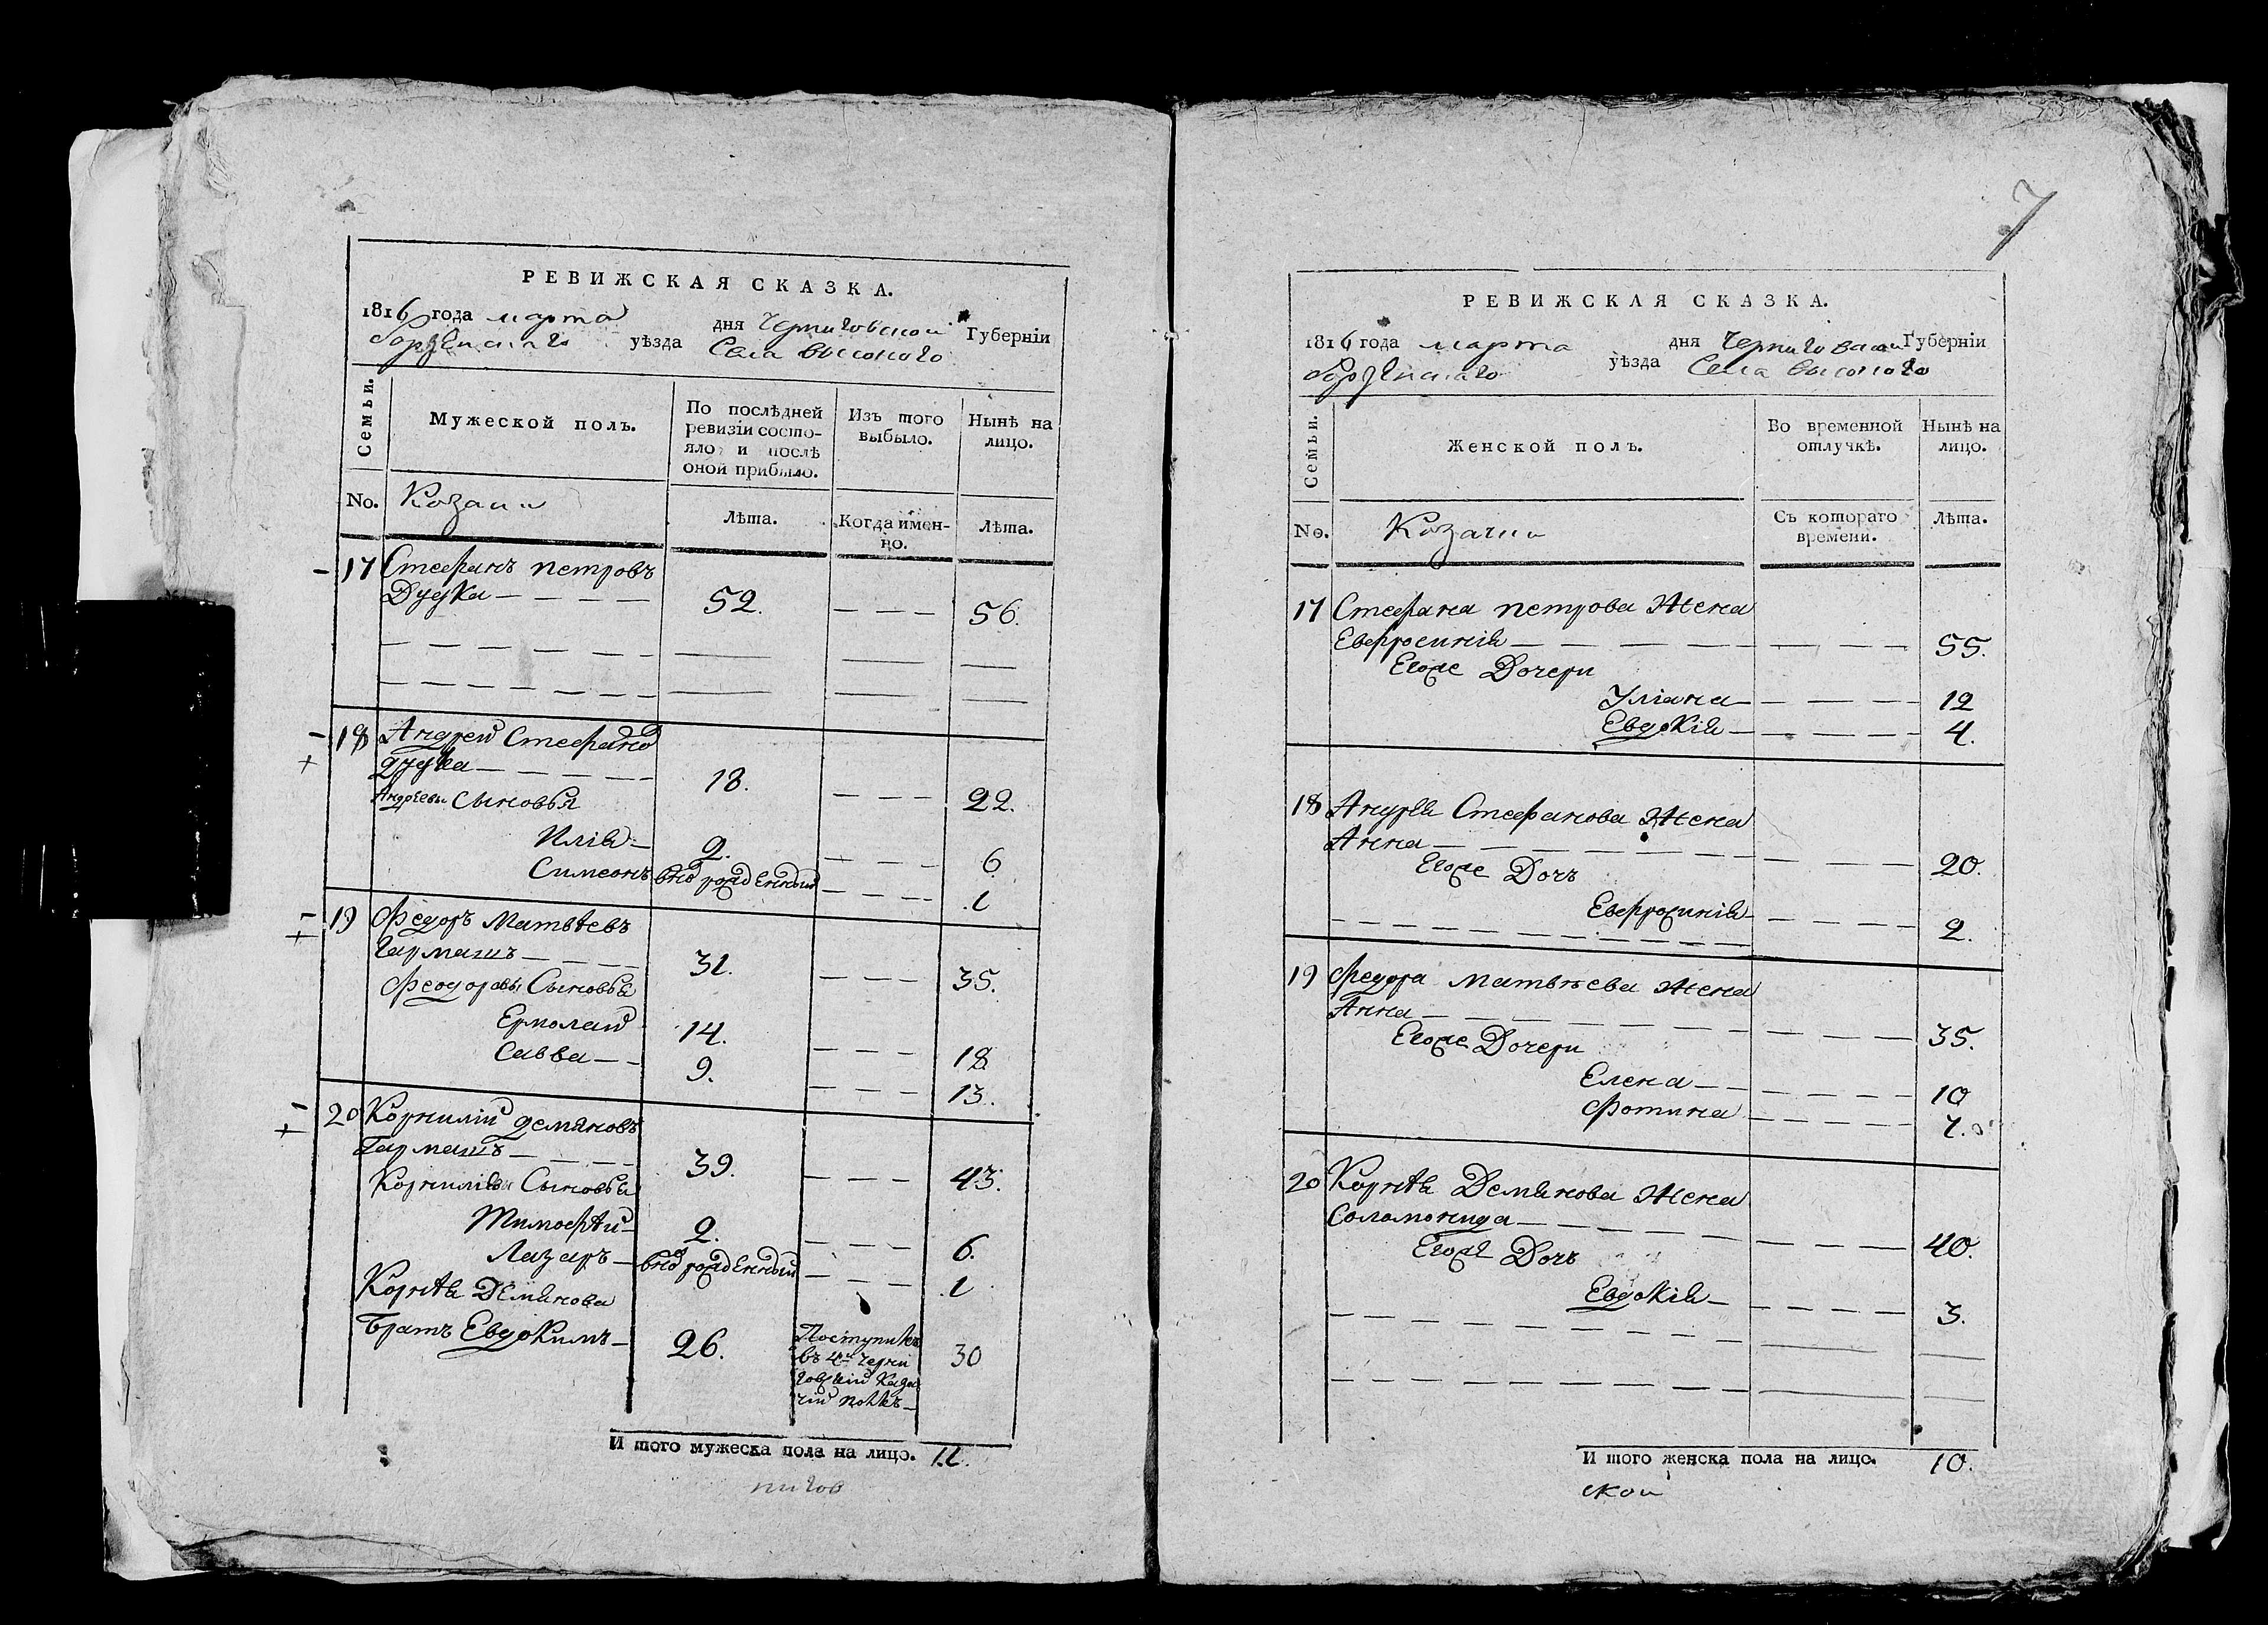 РЕВИЖСКАЯ СКАЗКА.
1816 года марта дня Черниговской Губерніи
Борзенскаго уѣзда Села высокого
Семьи.
Мужеской полъ.
По послѣдней ревизіи состояло и послѣ оной прибыло.
Изъ того выбыло.
Нынѣ на лицо.
No.
Козаки
Лѣта.
Когда именно.
Лѣта.
17 Стефанъ петровъ
Дудка 52. 56.
18 Андрей Стефано
дудка 18. 22.
Андреевы сыновья
Илія 2. 6
Симеонъ вно рожденный 1
19 Федоръ Матвѣевъ
Гармашъ 31. 35.
Феодоровы Сыновья
Ермолай 14. 18
Савва 9. 13.
20 Корнилій демяновъ
Гармашъ 39. 43.
Корниліевы Сыновья
Тимофѣй 2. 6.
Лазаръ вно рожденный 1
Корнѣя Демянова
Братъ Евдокимъ 26. Поступилъ 30
въ 4й черни
говскій каза
чій полкъ
И того мужеска пола на лицо. 11.
нигов
7
РЕВИЖСКАЯ СКАЗКА.
1816 года марта дня Черниговской Губерніи
Борзенскаго уѣзда Села высокого
Семьи.
Женской полъ.
Во временной отлучкѣ.
Нынѣ на лицо.
No.
Козачки
Съ котораго времени.
Лѣта.
17 Стефана петрова жена
Евфросинія 55.
Егоже Дочери
Уліана 12
Евдокія 4.
18 Андрея Стефанова жена
Анна 20.
Егоже Дочь
Евфросинія 2.
19 Федора Матвѣева жена
Анна 35.
Егоже Дочери
Елена 10
Фотина 7.
20 Корнѣя Демянова жена
Соломонида 40.
Егоже Дочь
Евдокія 3.
И того женска пола на лицо. 10.
ской